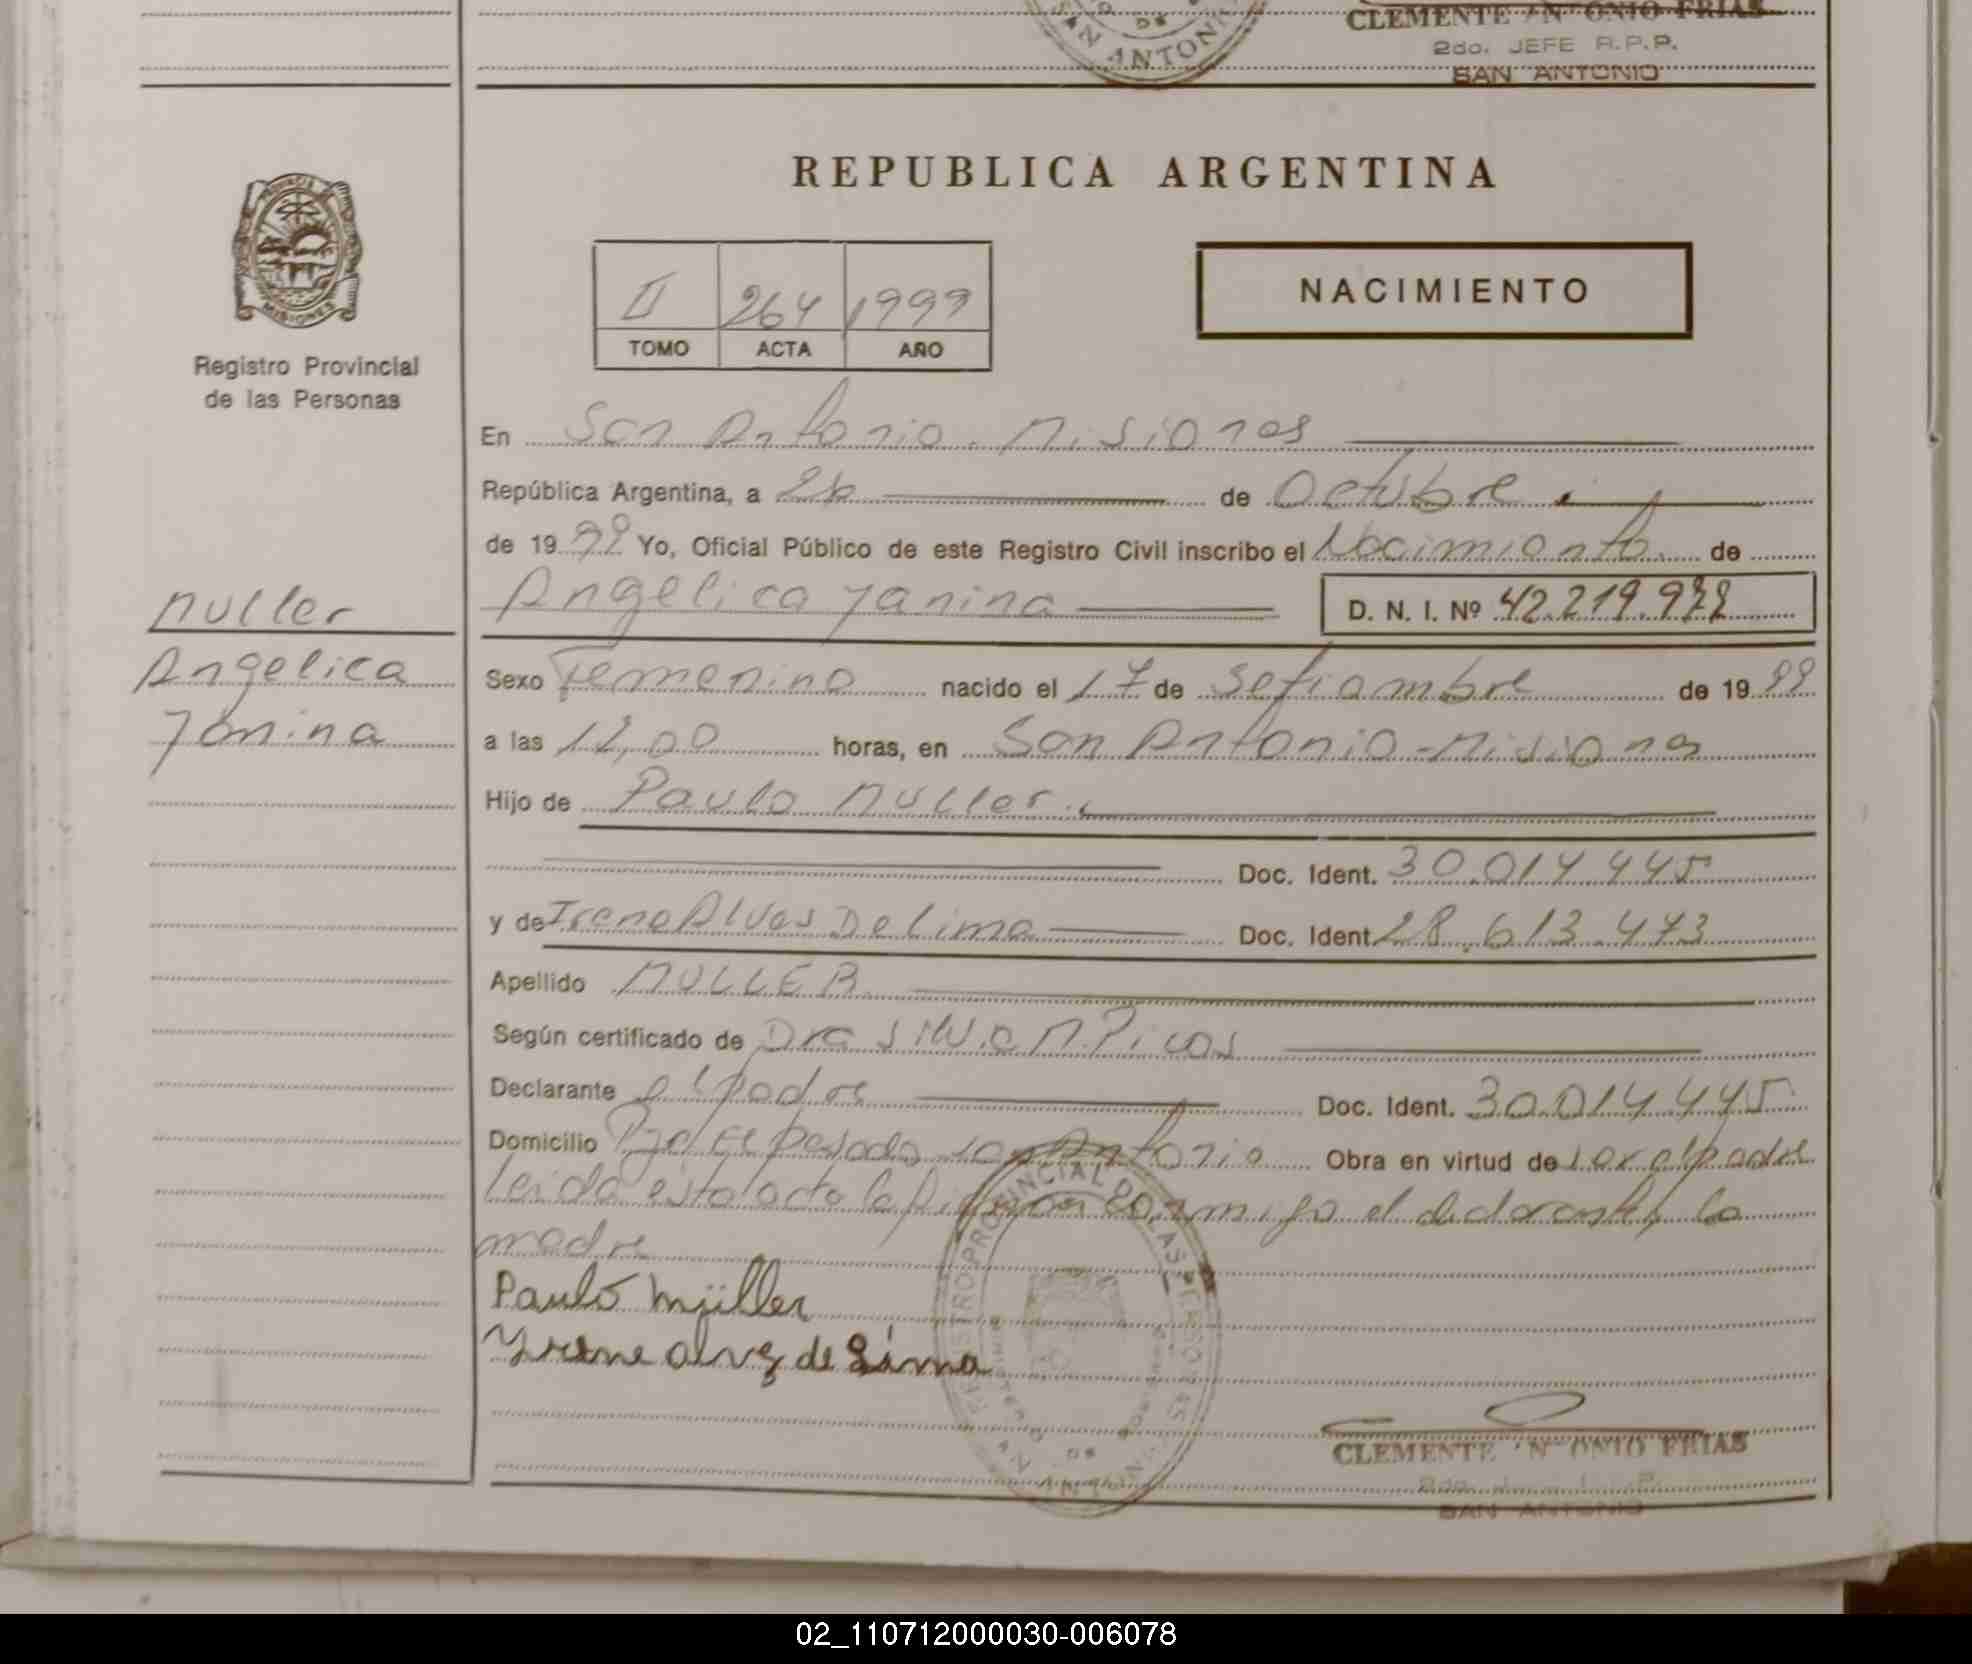 CLEMENTE ANTONIO FRIAS
2do. JEFE R.P.P.
SAN ANTONIO
SAN ANTONIO
REPUBLICA ARGENTINA
PROVINCIA DE MISIONES
Registro Provincial
de las Personas
II 264 1999
TOMO ACTA AÑO
NACIMIENTO
En San Antonio. Misiones
República Argentina, a 26 de Octubre
de 1999 Yo, Oficial Público de este Registro Civil inscribo el Nacimiento de
Muller
Angelica Yanina D. N. I. Nº 42.219.972
Angelica
Sexo Femenino nacido el 17 de Setiembre de 1999
Yanina
a las 12,00 horas, en San Antonio - Misiones
Hijo de Paulo Muller
Doc. Ident. 30.014.445
y de Irene Alves De Lima Doc. Ident 28.613.473
Apellido MULLER
Según certificado de Dra Silvia M.
Declarante el padre Doc. Ident. 30.014.445
Domicilio San Antonio Obra en virtud de ser el padre
Leida esta acta la firman conmigo el declarante y la
madre
Paulo Müller
Yrene alvez de Lima
REGISTRO PROVINCIAL DE LAS PERSONAS
CLEMENTE ANTONIO FRIAS
SAN ANTONIO
02_110712000030-006078